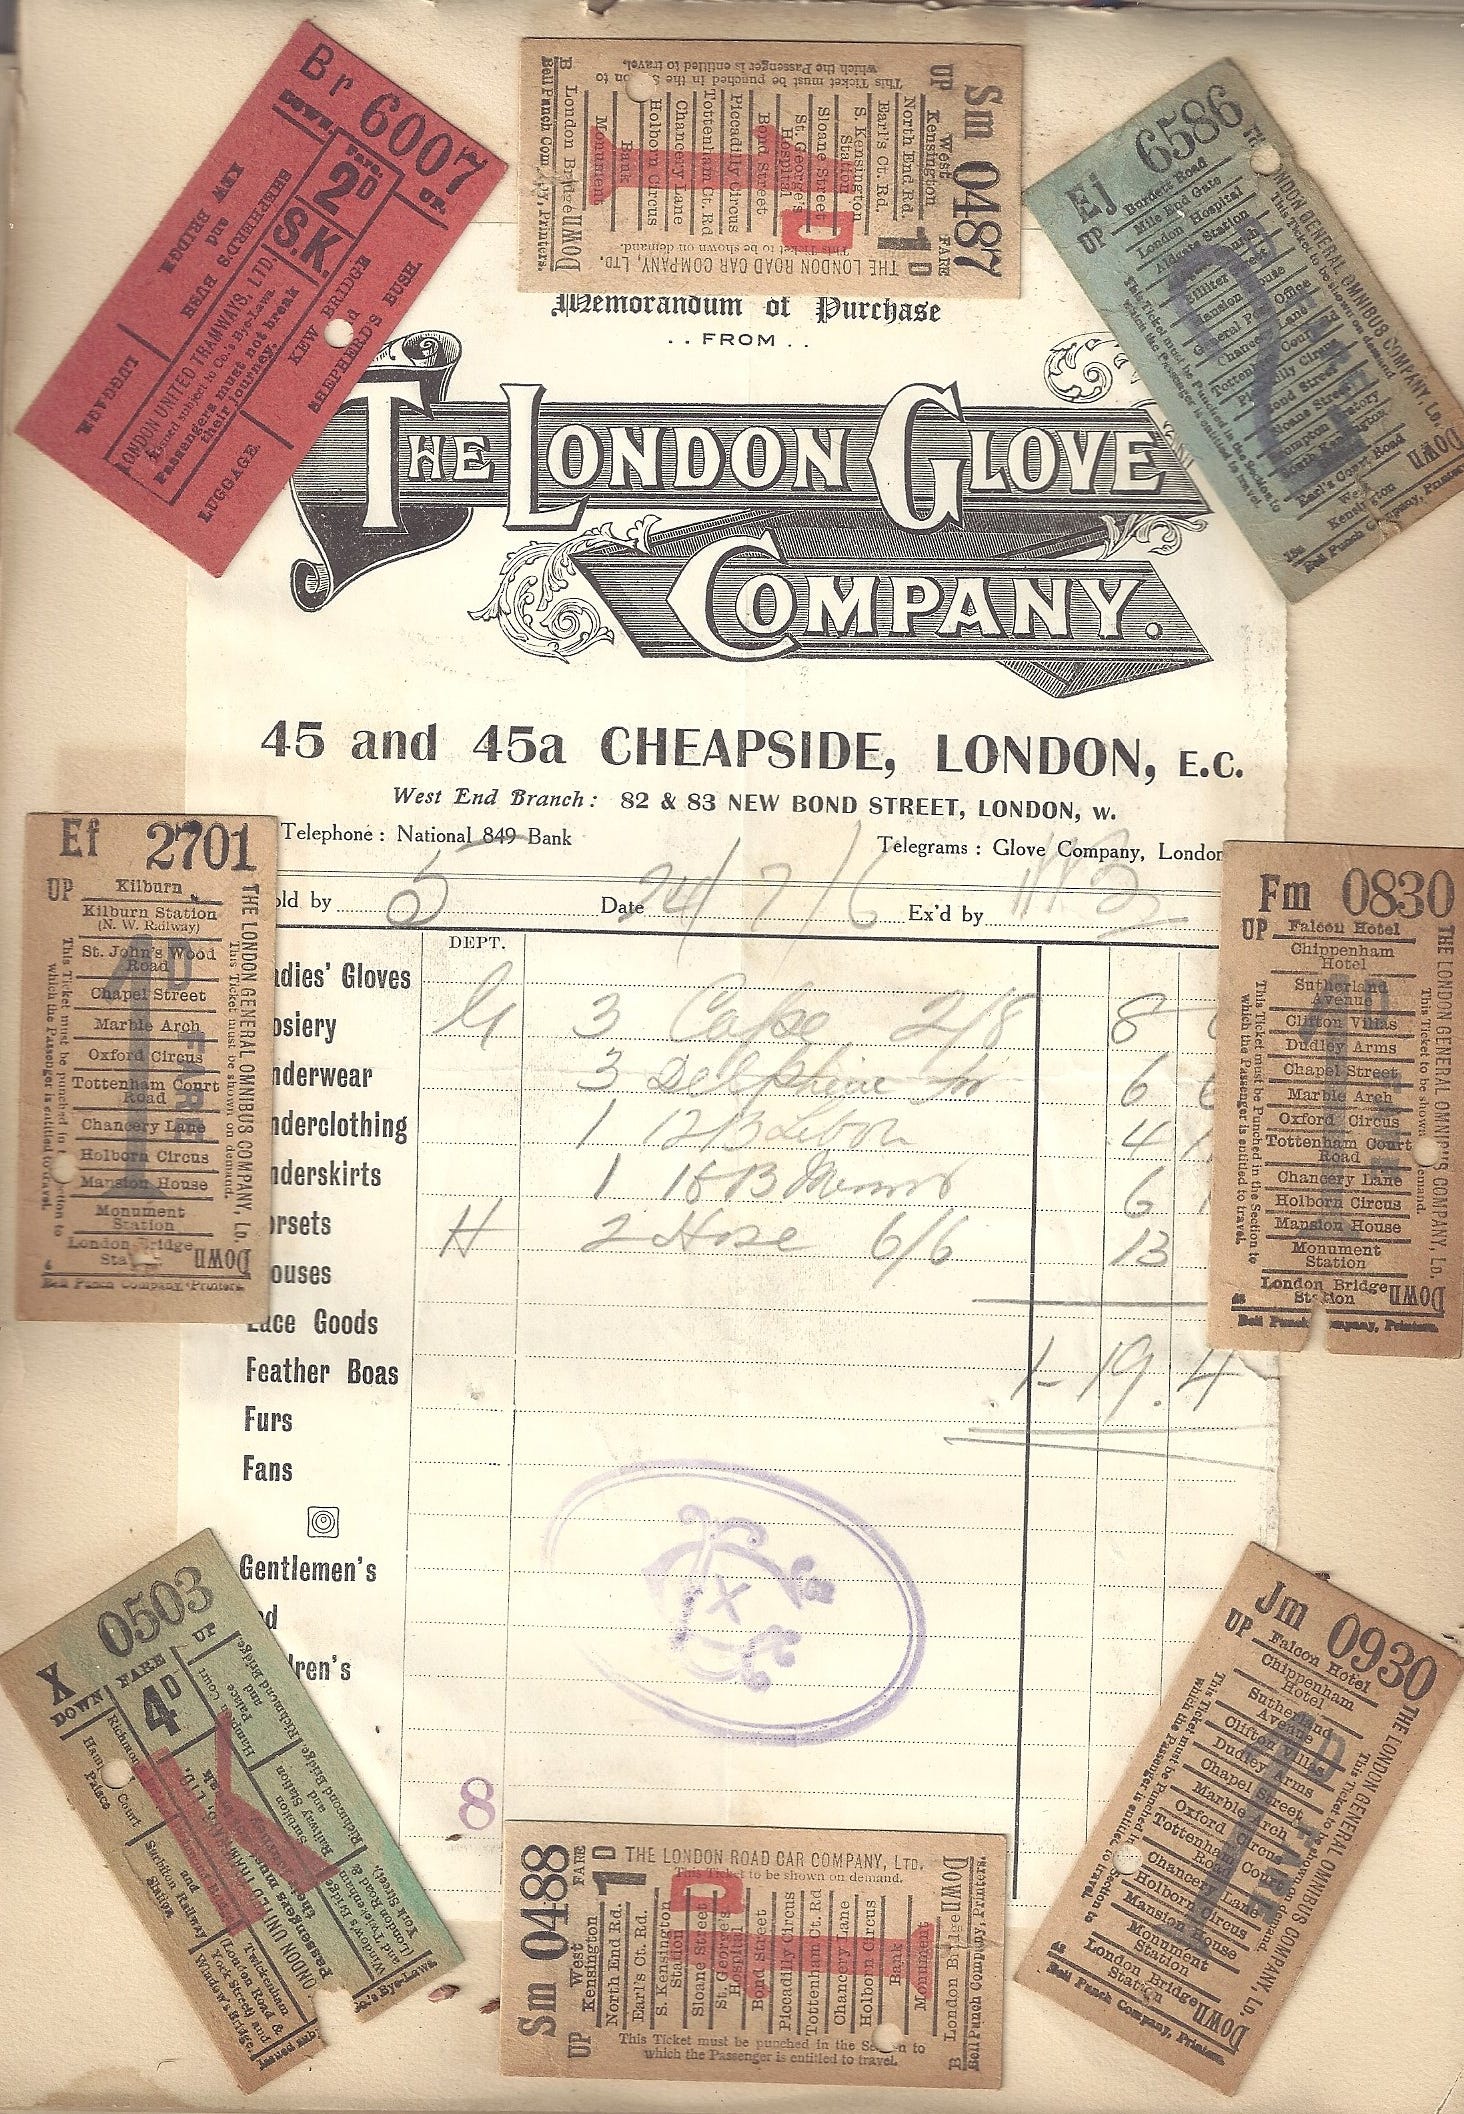 Br 6007
DOWN. UP.
Fare.
2D
S.K.
SHEPHERD'S BUSH
and
KEW BRIDGE
KEW BRIDGE
SHEPHERD'S BUSH.
LONDON UNITED TRAMWAYS, LTD.
Issued subject to Co.'s Bye-Laws
Passengers must not break
their journey.
LUGGAGE
LUGGAGE.
Sm 0487
UP
FARE
1D
West
Kensington
North End Rd.
Earl's Ct. Rd.
S. Kensington
Station
Sloane Street
St. George's
Hospital
Bond Street
Piccadilly Circus
Tottenham Ct. Rd
Chancery Lane
Holborn Circus
Bank
Monument
London Bridge
DOWN
THE LONDON ROAD CAR COMPANY, LTD.
This Ticket to be shown on demand.
This Ticket must be punched in the S on to
which the Passenger is entitled to travel.
B
Bell Punch Com y, Printers.
Ej 6586
UP
Burdett Road
Mile End Gate
London Hospital
Aldgate Station
General P Office
Chance Lane
Tottenh Court
P illy Circus
ond Street
Sloane Street
Brompton ratory
South Kensington
Earl's Court Road
Wes
Kensington
DOWN
ONDON GENERAL OMNIBUS COMPANY, LD.
This Ticket to be shown on demand
This Ticket must be Punched in the Section to
which the Passenger is entitled to travel.
Bell Punch Company, Printers
Memorandum of Purchase
. . FROM . .
THE LONDON GLOVE
COMPANY.
45 and 45a CHEAPSIDE, LONDON, E.C.
West End Branch: 82 & 83 NEW BOND STREET, LONDON, W.
Telephone: National 849 Bank Telegrams: Glove Company, London
old by 5 Date 24/7/6 Ex'd by
DEPT.
adies' Gloves
osiery G 3 Cape 2/8 8
nderwear 3 Delphine 6
nderclothing 1 12 B 4
nderskirts 1 16 B 6
orsets H 2 Hose 6/6 13
ouses
Lace Goods
Feather Boas 1-19.4
Furs
Fans
Gentlemen's
nd
dren's
8
Ef 2701
UP
Kilburn
Kilburn Station
(N. W. Railway)
St. John's Wood
Road
Chapel Street
Marble Arch
Oxford Circus
Tottenham Court
Road
Chancery Lane
Holborn Circus
Mansion House
Monument
Station
London Bridge
Sta
DOWN
1D FARE
THE LONDON GENERAL OMNIBUS COMPANY, LD.
This Ticket must be shown on demand.
This Ticket must be punched in ction to
which the Passenger is entitled to travel.
Bell Punch Company Printers.
Fm 0830
UP
Falcon Hotel
Chippenham
Hotel
Sutherland
Avenue
Clifton Villas
Dudley Arms
Chapel Street
Marble Arch
Oxford Circus
Tottenham Court
Road
Chancery Lane
Holborn Circus
Mansion House
Monument
Station
London Bridge
St ion
DOWN
1D FARE
THE LONDON GENERAL OMNIBUS COMPANY, LD.
This Ticket to be shown on demand.
This Ticket must be Punched in the Section to
which the Passenger is entitled to travel.
Bell Punch Company, Printers.
X 0503
DOWN FARE UP
4D
Richmond Bridge
and
Hampton Court
Palace
Richmond Bridge
and
Surbiton
Railway Station
Ham Court
Palace
and
Surbiton Railway
Station
Twickenham
(London Road &
York Street) and
Window's Bridge.
LONDON UNITED TRAMWAYS, LTD.
Passengers must
Sm 0488
UP
FARE
1D
West
Kensington
North End Rd.
Earl's Ct. Rd.
S. Kensington
Station
Sloane Street
St. George's
Hospital
Bond Street
Piccadilly Circus
Tottenham Ct. Rd
Chancery Lane
Holborn Circus
Bank
Monument
London Bridge
DOWN
THE LONDON ROAD CAR COMPANY, LTD.
This Ticket to be shown on demand.
This Ticket must be punched in the Se n to
which the Passenger is entitled to travel.
B
Bell Punch Company, Printers.
Jm 0930
UP
Falcon Hotel
Chippenham
Hotel
Sutherland
Avenue
Clifton Villas
Dudley Arms
Chapel Street
Marble Arch
Oxford Circus
Tottenham Court
Road
Chancery Lane
Holborn Circus
Mansion House
Monument
Station
London Bridge
Station
DOWN
1D FARE
THE LONDON GENERAL OMNIBUS COMPANY, LD.
This Ticket to be shown on demand.
This Ticket must be Punched in Section to
which the Passenger is entitled to travel.
Bell Punch Company, Printers.